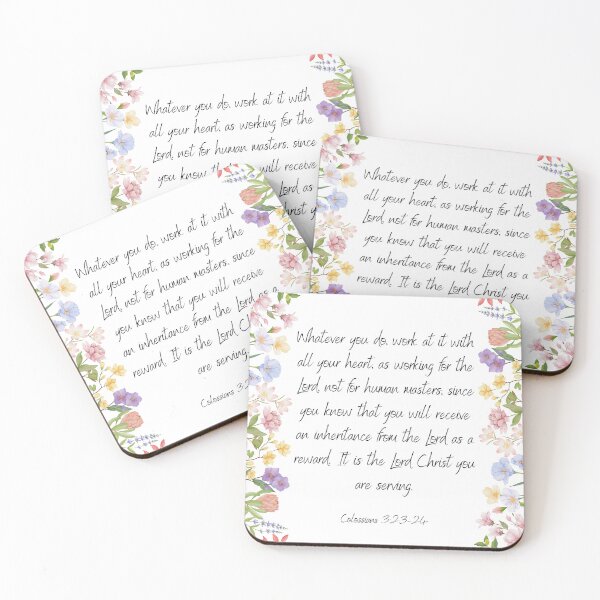 Whatever you do, work at it with
all your heart, as working for the
Lord, not for human masters, since
you know will receive
Lord as
you
Whatever you do, work at it with
all your heart, as working for the
Lord, not for human masters, since
you know that you will receive
an inheritance from the Lord as a
reward. It is the Lord Christ you
Whatever you do, work at it with
all your heart, as working for the
Lord, not for human masters, since
you know that you will receive
an inheritance from the Lord as a
reward. It is the Lord Christ you
are serving.
Colossians
Whatever you do, work at it with
all your heart, as working for the
Lord, not for human masters, since
you know that you will receive
an inheritance from the Lord as a
reward. It is the Lord Christ you
are serving.
Colossians 3:23-24